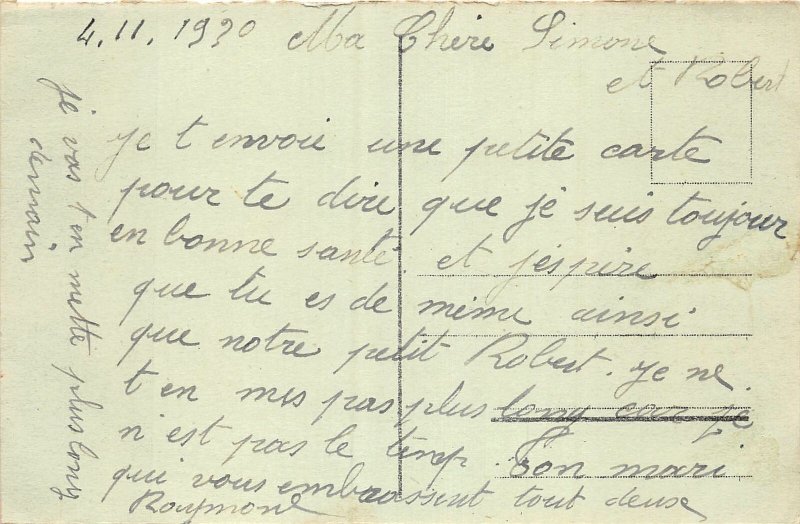 4.11.1930 Ma Chère Simone
et Robert
je t envoie une petite carte
pour te dire que je suis toujour
en bonne santé. et j'espire
que tu es de même ainsi
que notre petit Robert. je ne
t en mes pas plus long car je
n est pas le temp. ton mari
qui vous embrassent tout deux
Raymond
je vas t en mette plus long
demain